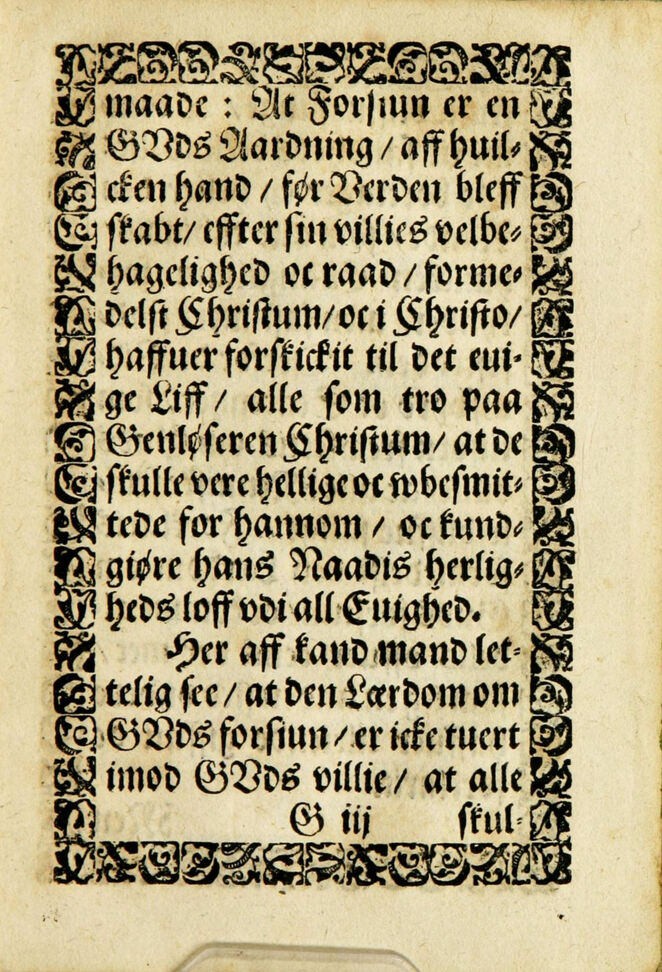 maade : At Forsiun er en
GVds Aardning / aff huil-
cken hand / før Verden bleff
skabt/ effter sin villies velbe-
hagelighed oc raad / forme-
delst Christum/ oc i Christo/
haffuer forskickit til det eui-
ge Liff / alle som tro paa
Genløseren Christum/ at de
skulle vere hellige oc wbesmit-
tede for hannom / oc kund-
giøre hans Naadis herlig-
heds loff vdi all Euighed.
Her aff kand mand let-
telig see / at den Lærdom om
GVds forsiun / er icke tuert
imod GVds villie / at alle
G iij skul-